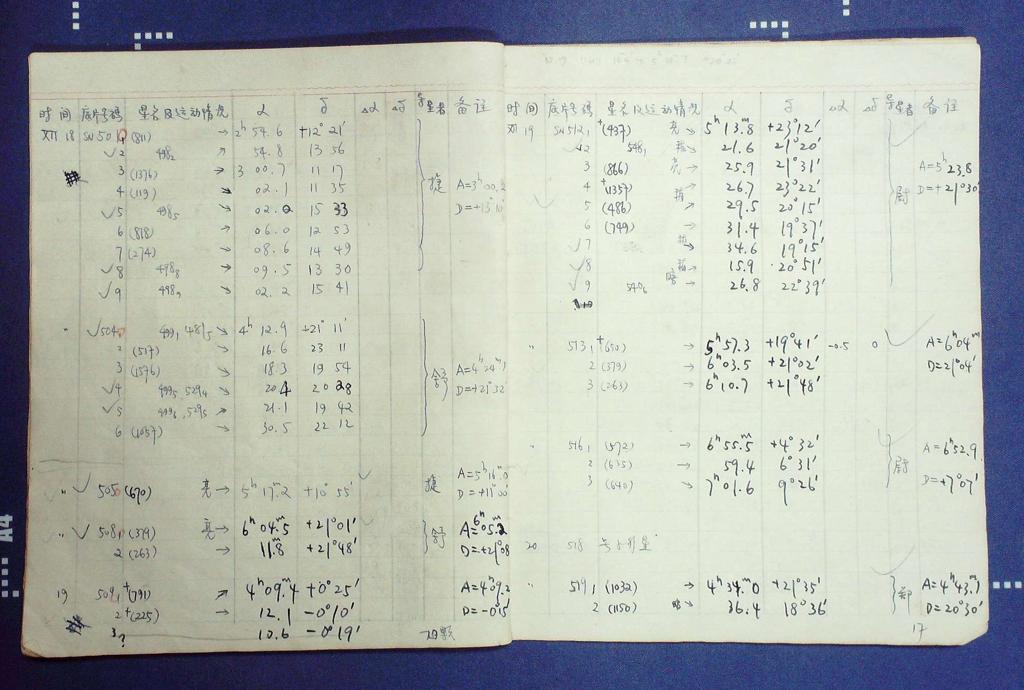 时间 底片号码 星名及运动情况 α δ Δα Δδ 导星者 备注
XII 18 SN501 (811) → 2h 54.6 +12° 21'
√2 498₂ → 54.8 13 56
3 (1376) ↗ 3 00.7 11 17
4 (119) ↗ 02.1 11 35 捷 A=3h00.2
√5 498₅ 02.2 15 33 D=+13°10'
6 (818) → 06.0 12 53
7 (274) → 08.6 14 49
√8 498₈ → 09.5 13 30
√9 498₉ → 02.2 15 41
" √504 499₁ 481₅ → 4h 12.9 +21° 11'
2 (517) → 16.6 23 11
3 (1576) → 18.3 19 54 舒 A=4h24m
√4 499₅, 529₄ → 20.4 20 28 D=+21°32'
√5 499₆, 529₅ → 21.1 19 42
6 (1057) → 30.5 22 12
A=5h16m.0
" √ 505 (670) 亮 → 5h 17m.2 +10° 55' 捷 D=+11°00'
" √ 508₁ (379) 亮 → 6h 04m.5 +21°01' 舒 A=6h05m.2
2 (263) → 11m.8 +21°48' D=+21°08'
19 509₁ +(791) ↗ 4h 09m.4 +0° 25' A=4h09.2
2 +(225) → 12.1 −0°10' D=−0°5'
3? 10.6 −0°19'
时间 底片号码 星名及运动情况 α δ Δα Δδ 导星者 备注
XII 19 SN512₁ +(437) 亮 → 5h 13m.8 +23°12'
√2 548₁ → 21.6 21°20'
3 (866) 亮 → 25.9 21°31' A=5h23.8
4 +(1357) → 26.7 23°22' 尉 D=+21°30'
5 (486) ↗ 29.5 20°15'
6 (749) → 31.4 19°37'
√7 → 34.6 19°15'
√8 → 15.9 20°51'
√9 540₆ 暗 → 26.8 22°39'
" 513₁ +(650) → 5h 57m.3 +19°41' −0.5 0 A=6h04m
2 (379) → 6h03.5 +21°02' D=21°04'
3 (263) → 6h10.7 +21°48'
" 516₁ (572) → 6h 55m.5 +4° 32' A=6h52.9
2 (635) → 59.4 6°31' 尉
3 (640) → 7h01.6 9°26' D=+7°07'
20 518
" 519₁ (1032) → 4h 34m.0 +21°35' 郑 A=4h43m.1
2 (1150) 暗 → 36.4 18°36' D=20°30'
17